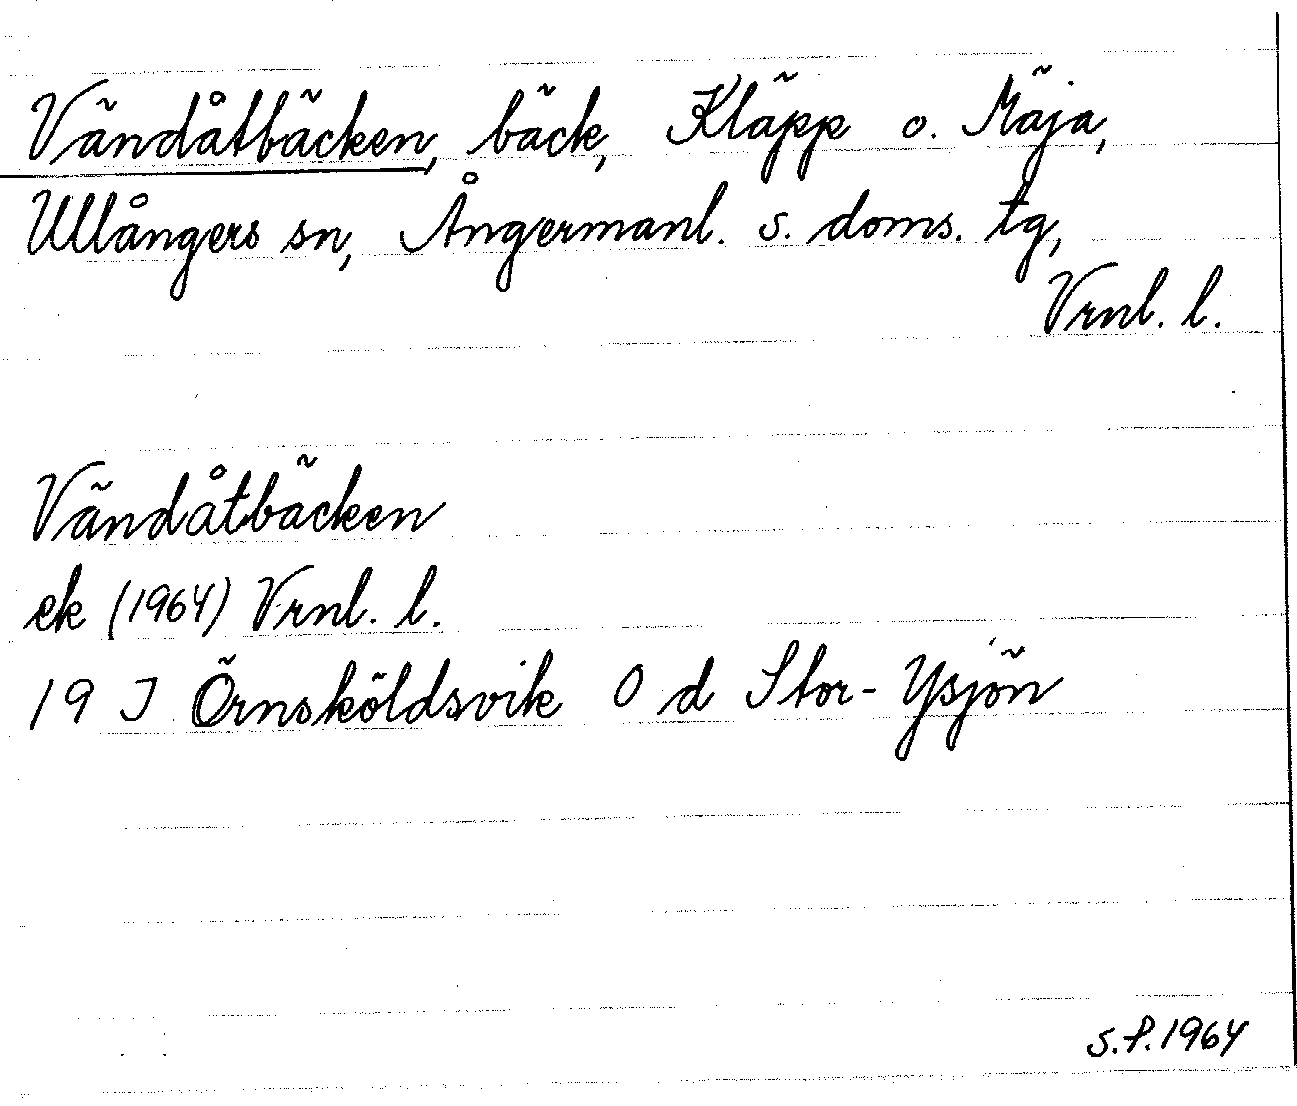 Vändåtbäcken, bäck, Kläpp o. Mäja,
Ullångers sn, Ångermanl. s. doms. tg,
Vrnl. l.
Vändåtbäcken
ek (1964) Vrnl. l.
19 J Örnsköldsvik 0 d Stor-Ysjön
s.f. 1964